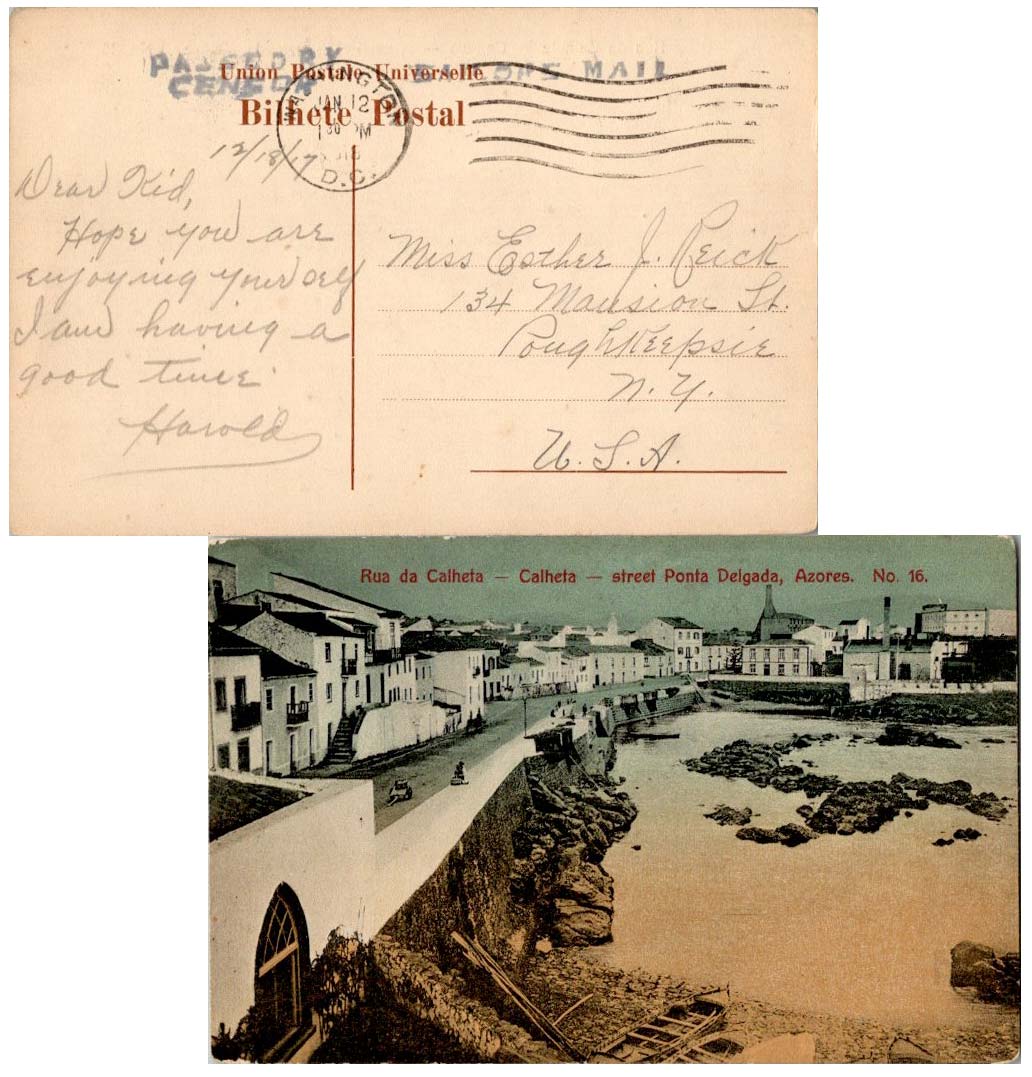 PASSED BY
CENSOR
Union Postale Universelle
MAIL
Bilhete Postal
WASHINGTON
JAN 12
30 PM
D.C.
12/18/17
Dear Kid,
Hope you are
enjoying yourself
I am having a
good time.
Harold
Miss Esther J. Reick
134 Mansion St.
Poughkeepsie
N. Y.
U. S. A.
Rua da Calheta — Calheta — street Ponta Delgada, Azores. No. 16.